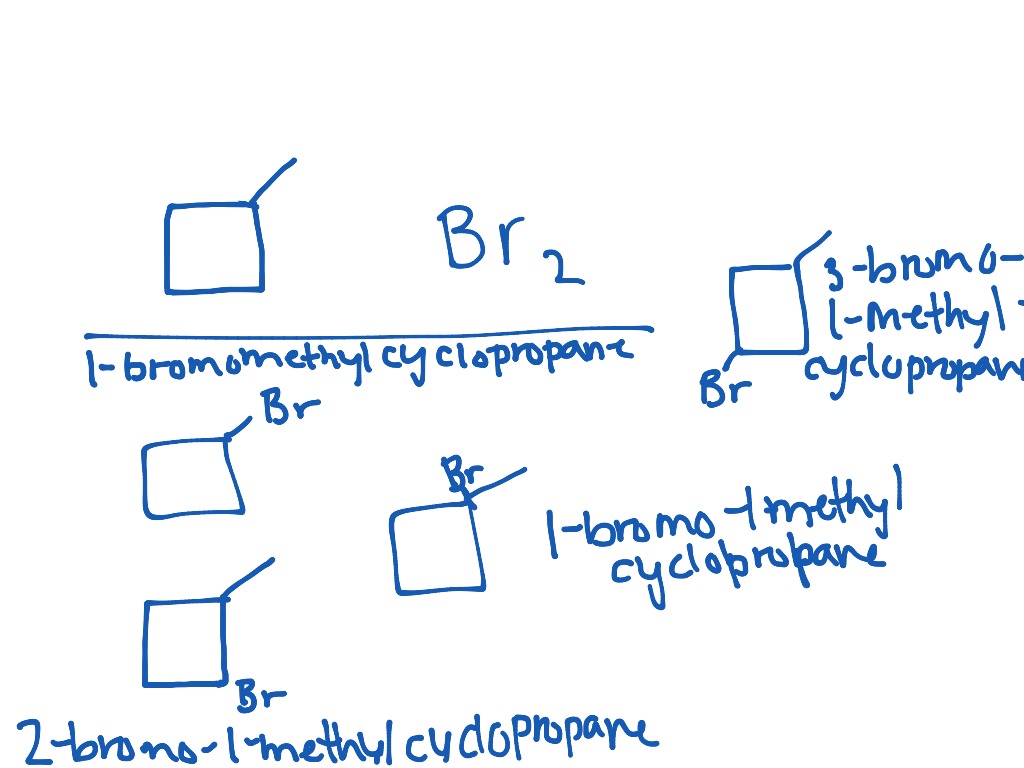 Br2
3-bromo-
1-methyl-
cyclopropane
Br
1-bromomethylcyclopropane
Br
Br
1-bromo-1methyl
cyclopropane
Br
2-bromo-1-methylcyclopropane